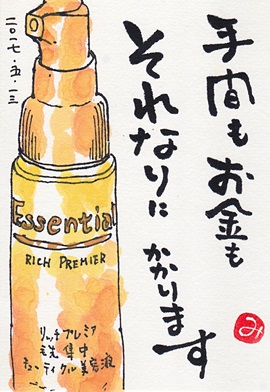 手間もお金も
それなりに
かかります
み
二〇一七・五・一三
Essential
RICH PREMIER
リッチプレミア
毛先集中
キューティクル美容液